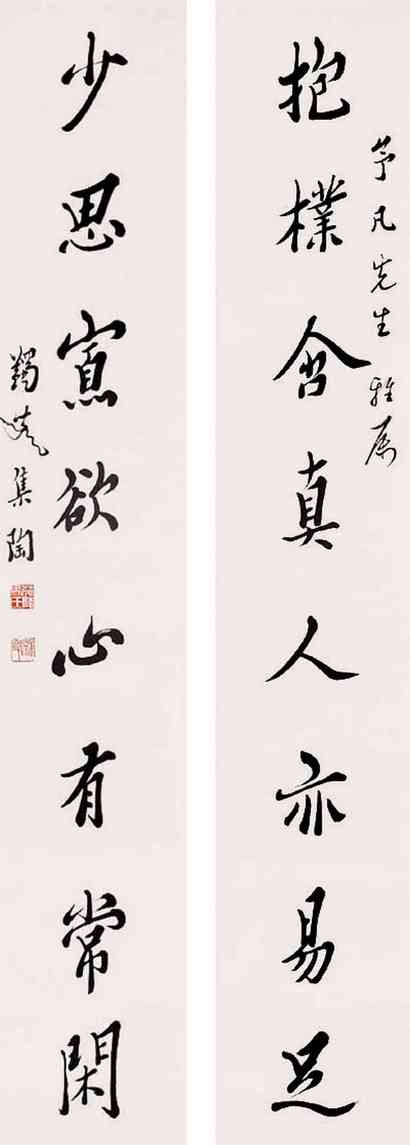 抱樸含真人亦易足
芧凡先生雅属
少思寡欲心有常閑
蠲叟集陶